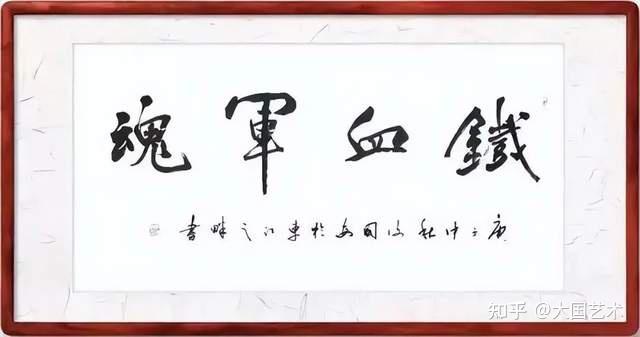 鐵血軍魂
庚子中秋於東江之畔書
知乎 @大国艺术